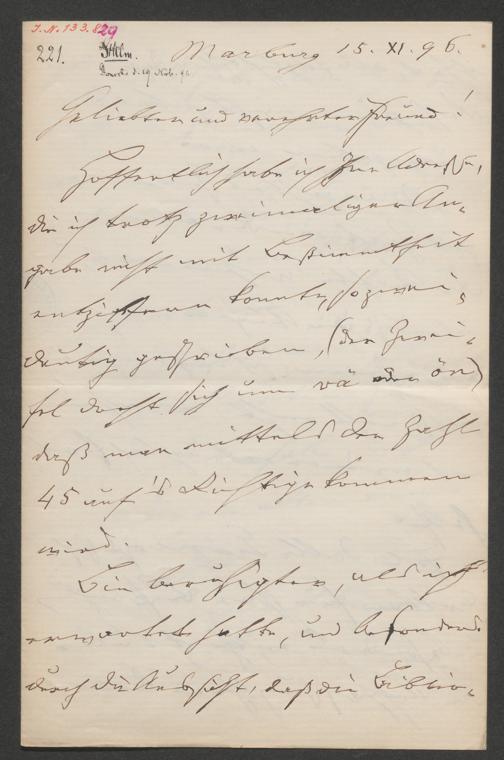 I.N. 133.829
221.
Marburg 15. XI. 96.
Geliebter und verehrter Freund!
Hoffentlich habe ich Ihre Adresse,
die ich trotz zweimaliger An-
gabe nicht mit Bestimmtheit
entziffern konnte, so zwei-
deutig geschrieben, (der Zwei-
fel dreht sich um vä oder ör)
daß man mittels der Zahl
45 auf's Richtige kommen
wird.
Bin beruhigter, als ich
erwartet hatte, und besonders
durch die Aussicht, daß die Biblio-